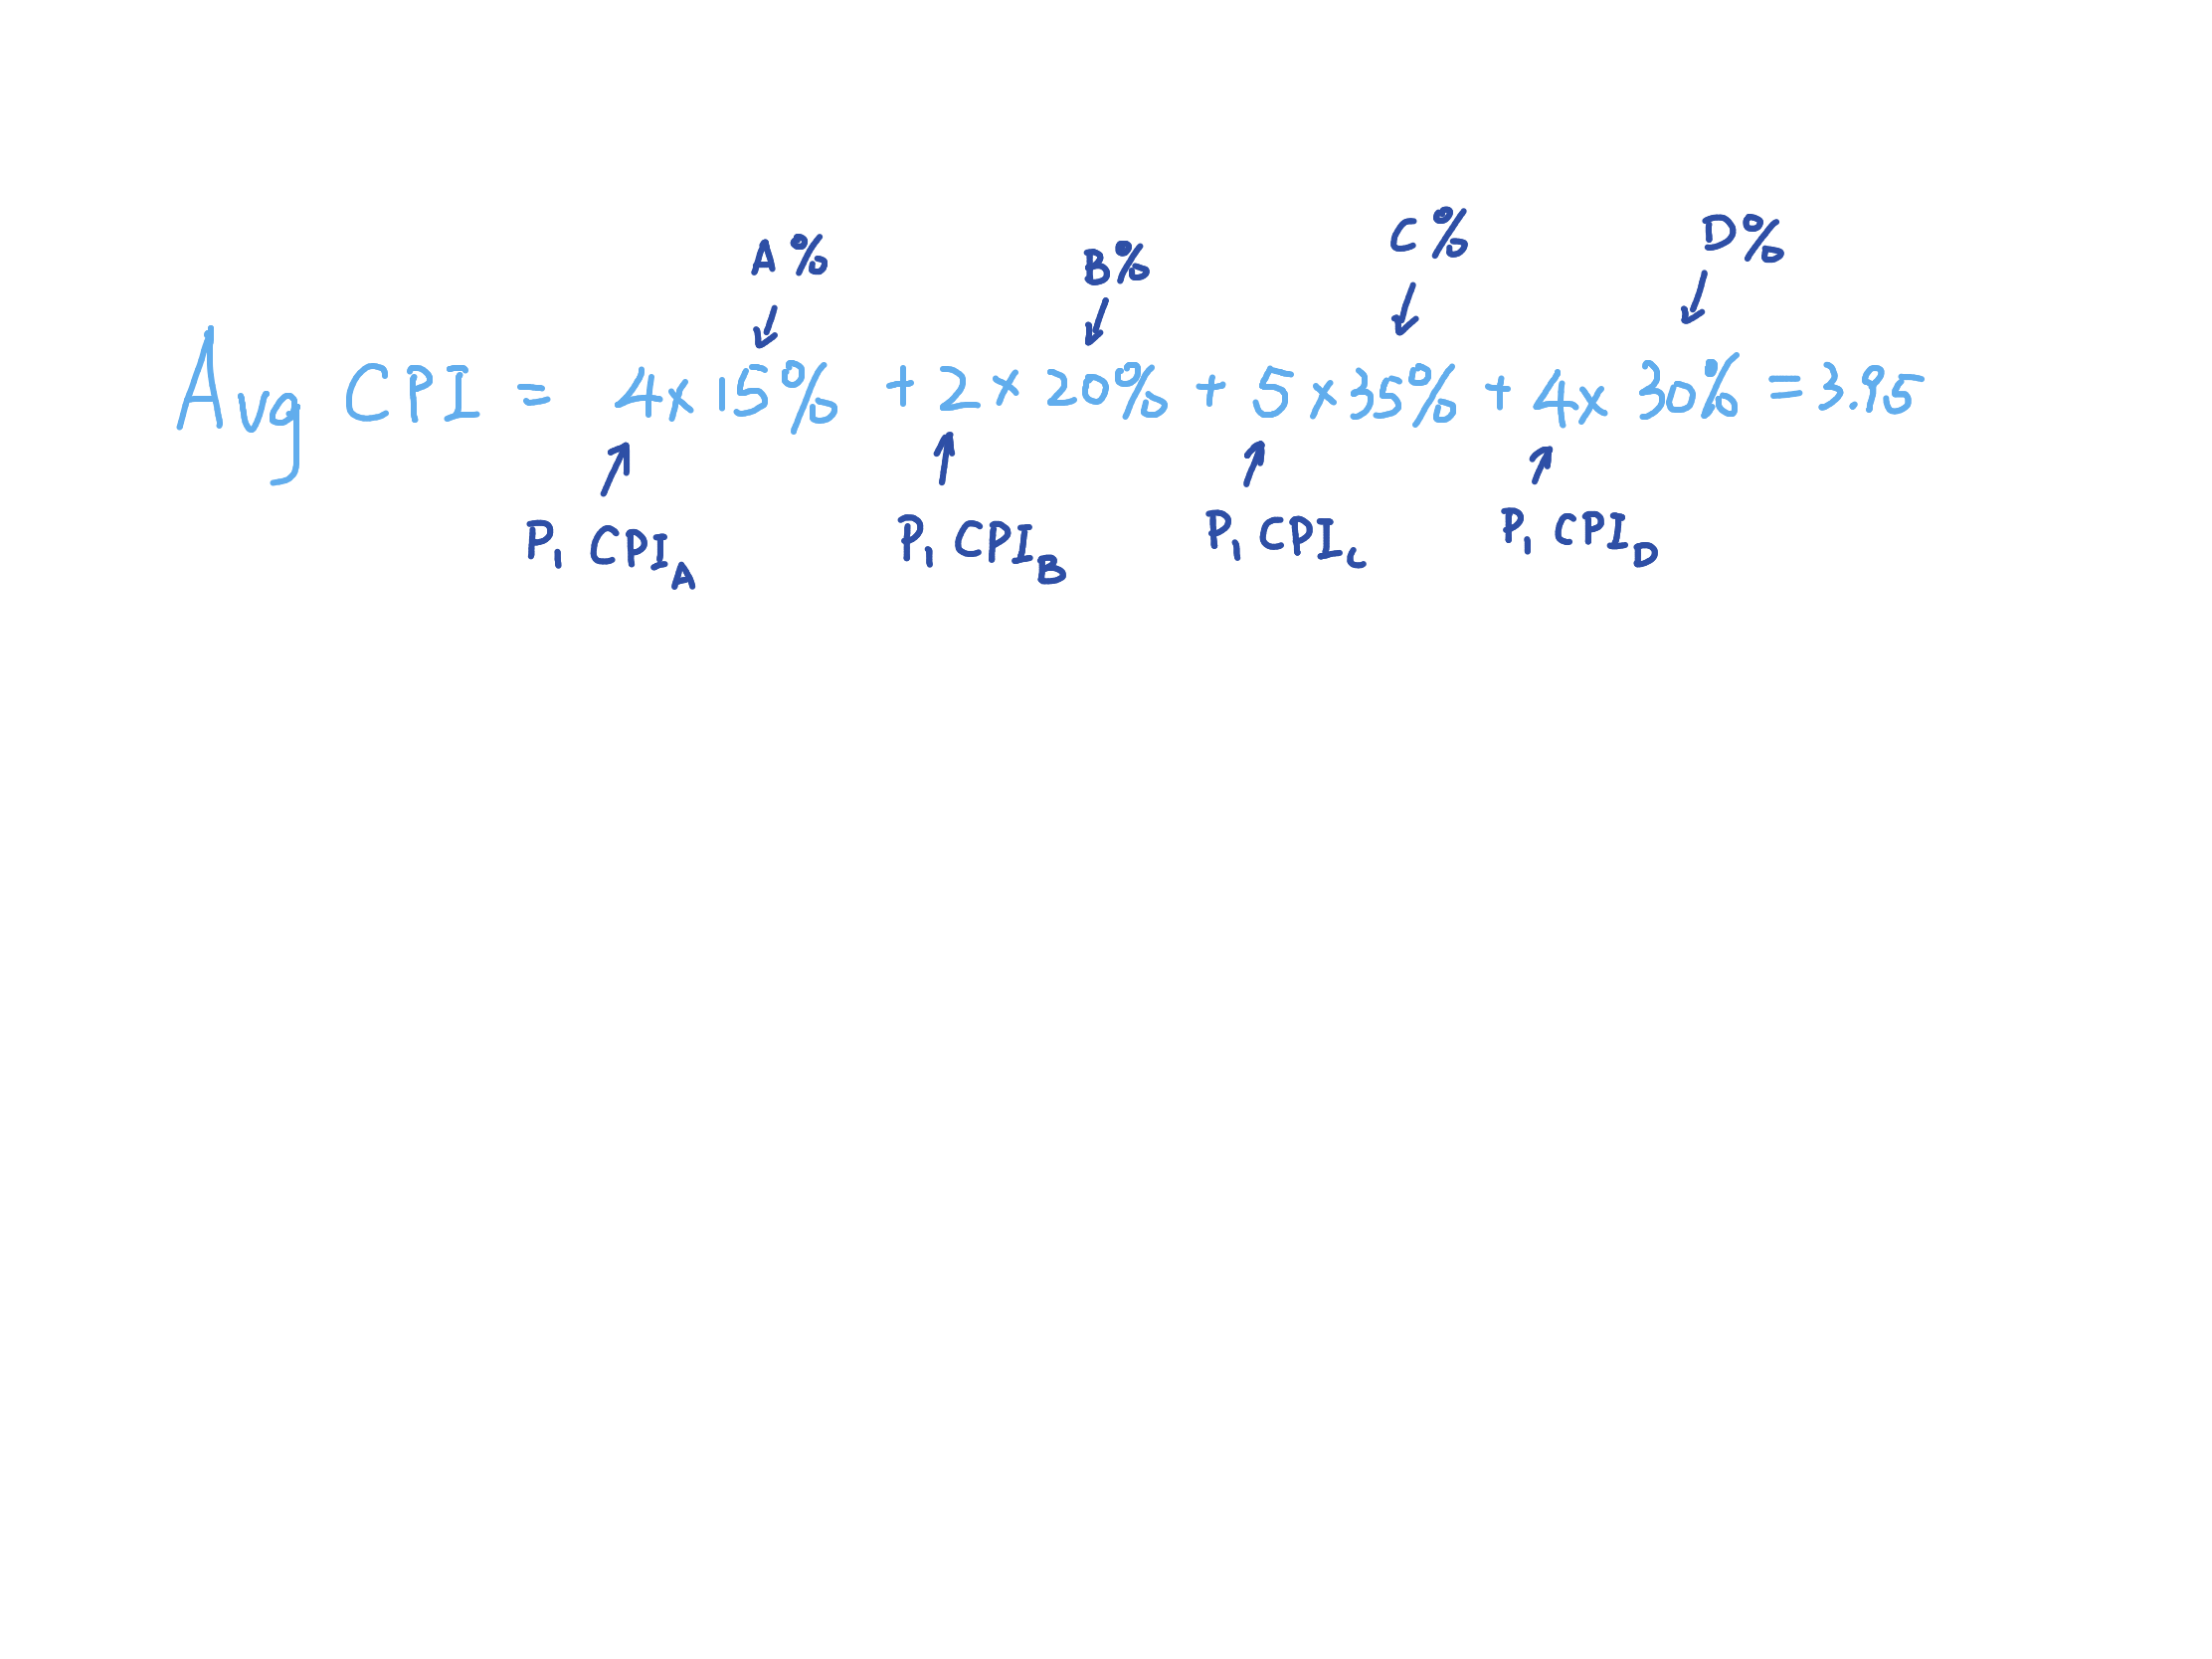 A% B% C% D%
Avg CPI = 4x15% + 2 x 20% + 5 x 35% + 4x 30% = 3.95
P1 CPIA P1 CPIB P1 CPIC P1 CPID